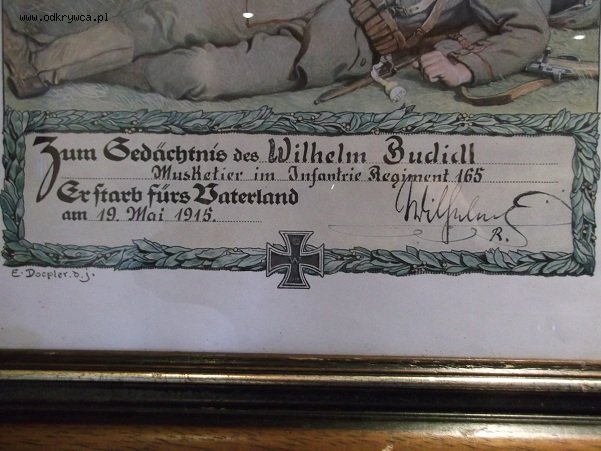 www.odkrywca.pl
Zum Gedächtnis des Wilhelm Budidl
Musketier im Infantrie Regiment 165
Er starb fürs Vaterland
am 19. Mai 1915.
Wilhelm
R.
E. Doepler. d. j.